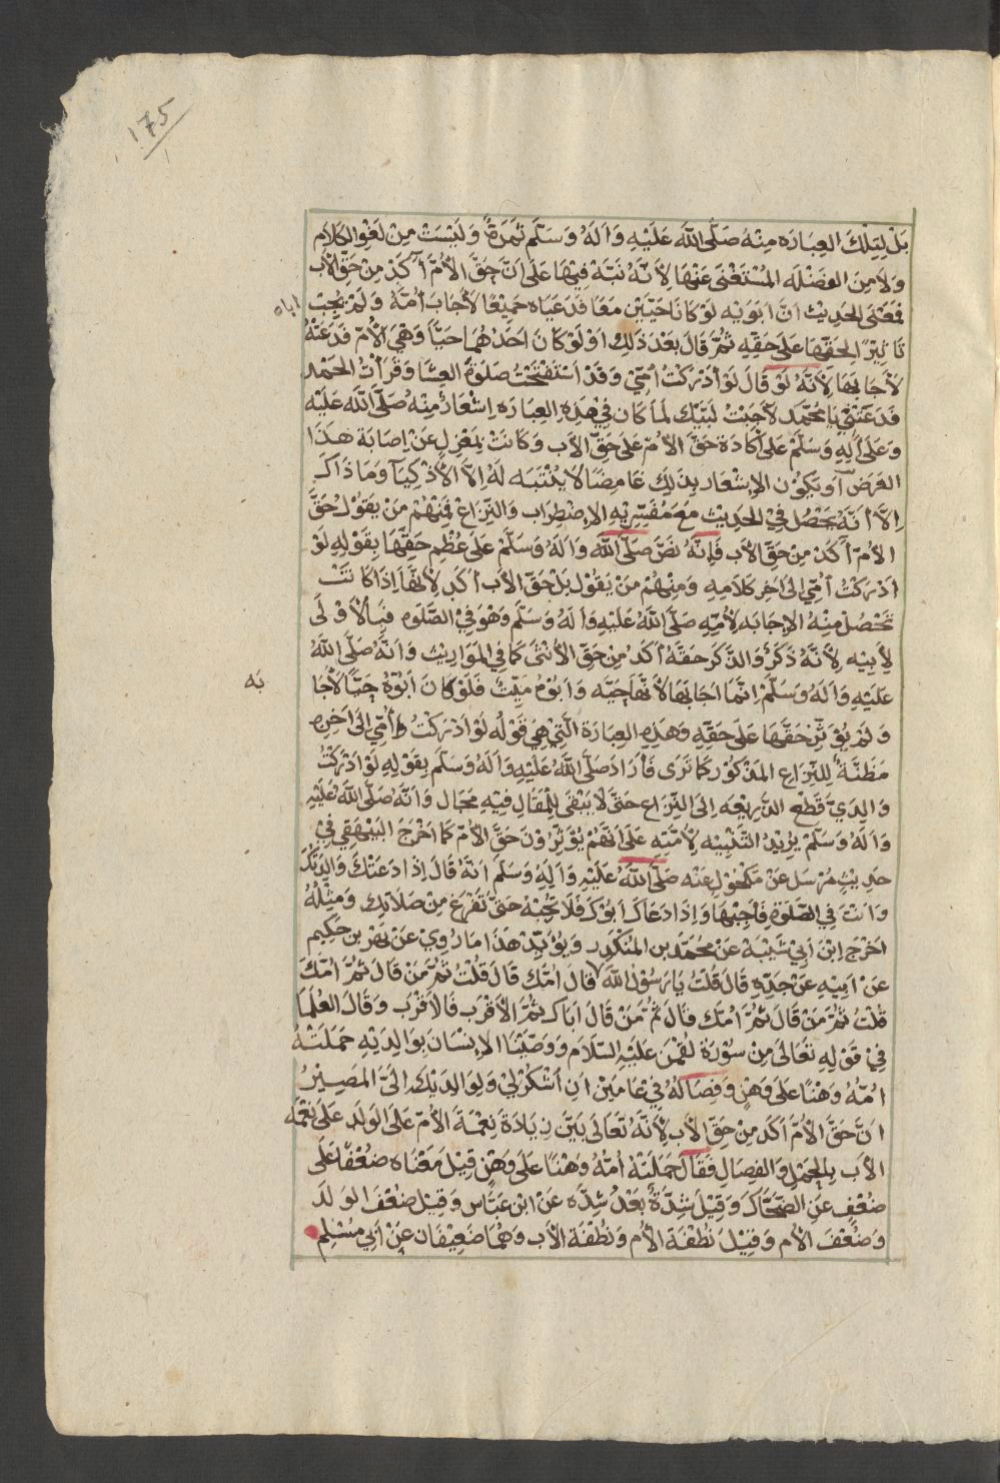 ١٧٥
بَلْ لِتِلْكَ العِبَارَه مِنْهُ صَلَّى اللّه عَلَيْهِ وَآلَهُ وَسَلَّمَ ثَمَرَةٌ وَلَيْسَتْ مِنْ لَغْوِ الكَلَامِ
وَلَا مِنَ الفَضْلَه المُسْتَغْنَى عَنْهَا لِأَنَّهُ نَبَّهَ فِيْهَا عَلَى اَنَّ حَقَّ الاُمِّ آكَدْ مِنْ حَقِّ الْاَبِ
فَمَعْنَى الحَدِيْث اَنَّ اَبَوَيْهِ لَوْ كَانَا حَيَّيْنِ مَعًا فَدَعَيَاه جَمِيْعًا لَأَجَابَ اُمَّهُ وَلَمْ يُجِبْ اباه
تَاثِيْرًا لِحَقِّهَا عَلَى حَقِّهِ ثُمَّ قَالَ بَعْدَ ذَلِكَ اَوْ لَوْ كَانَ اَحَدُهُمَا حَيًّا وَهْيَ الْاُمّ فَدَعَتْهُ
لَأَجَابَهَا لِأَنَّهُ لَوْ قَالَ لَوْ أَدْرَكْتُ اُمِّيْ وَقَدْ اسْتَفْتَحْتُ صَلَوةَ العِشَا وَقَرَأْتُ الحَمْد
فَدَعَتْنِيْ يَا مُحَمَّد لَأَجَبْتُ لَبَّيْكَ لَمَا كَانَ فِيْ هٰذِهِ العِبَارَه اِشْعَارٌ مِنْهُ صَلَّى اللّه عَلَيْهِ
وَعَلَى آلِهِ وَسَلَّمْ عَلَى آكَادَة حَقِّ الاُمّ عَلَى حَقِّ الْاَب وَكَانَتْ بِمَعْزِلٍ عَنْ اِصَابَة هَذَا
الغَرَضْ اَو يَكُوْن الاِشْعَار بِذَلِكَ غَامِضًا لَا يُنْتَبَه لَهُ اِلَّا الْاَذْكِيَاَ وَمَا ذَاكَ
اِلَّا اَنَّهُ يَحْصُل فِي الحَدِيْثِ مَعَ مُفَسِّرِيْهِ الاِضْطِرَاب وَالنِّزَاعْ فَمِنْهُمْ مَنْ يَقُوْلُ حَقّ
الاُمّ آكَدْ مِنْ حَقِّ الْاَب فَإِنَّهُ نَصَّ صَلَّى اللّه وَآلَهُ وَسَلَّمْ عَلَى عُظْمِ حَقِّهَا بِقَوْلِهِ لَوْ
اَدْرَكْتُ اُمِّيْ اِلَى اٰخِر كَلَامِهِ وَمِنْهُمْ مَنْ يَقُوْل بَلْ حَقّ الْاَب آكَدْ لِأَنَّهَا اِذَا كَانَتْ
تَحْصُلْ مِنْهُ الاِجَابَه لِأُمِّهِ صَلَّى اللّهُ عَلَيْهِ وَآلَهُ وَسَلَّمْ وَهْوَ فِي الصَّلَوه فَبِالْأَوْلَى
لِأَبِيْهِ لِأَنَّهُ ذَكَرٌ وَالذَّكَر حَقُّهُ آكَدُ مِنْ حَقِّ الْاُنْثَى كَمَا فِي المَوَارِيْث وَاَنَّهُ صَلَّى اللّهُ
عَلَيْهِ وَآلَهُ وَسَلَّمْ اِنَّمَا اَجَابَهَا لِأَنَّهَا حَيَّه وَاَبُوْهُ مَيِّتْ فَلَوْ كَانَ اَبُوْهُ حَيًّا لَأَجَا بَه
وَلَمْ يُؤَثِّرْ حَقَّهَا عَلَى حَقِّهِ وَهَذِهِ العِبَارَة الَّتِيْ هِيَ قَوْلُه لَوْ اَدْرَكْتُ اُمِّيْ اِلَى اٰخِرِه
مَظِنَّةٌ لِلنِّزَاعِ المَذْكُوْر كَمَا تَرَى فَأَرَادَ صَلَّى اللّهُ عَلَيْهِ وَآلَهُ وَسَلَّمَ بِقَوْلِهِ لَوْ اَدْرَكْتُ
وَالِدَيّ قَطْعَ الذَّرِيْعَه اِلَى النِّزَاعِ حَتَّى لَا يَبْقَى لِلْمَقَالِ فِيْهِ مَجَال وَاَنَّهُ صَلَّى اللّهُ عَلَيْهِ
وَآلَهُ وَسَلَّمْ يُرِيْدُ التَّنْبِيْه لِأُمَّتِهِ عَلَى اَنَّهُمْ يُؤَثِّرُوْنَ حَقَّ الاُمّ كَمَا اَخْرَجَ البَيْهَقِي فِيْ
حَدِيْثٍ مُرْسَل عَنْ مَكْحُوْل عَنْه صَلَّى اللّهُ عَلَيْهِ وَآلِهِ وَسَلَّمَ اَنَّهُ قَالَ اِذَا دَعَتْكَ وَالِدَتُكَ
وَاَنْتَ فِي الصَّلَوةِ فَأَجِبْهَا وَاِذَا دَعَاكَ اَبُوْكَ فَلَا تُجِبْهُ حَتَّى تَفْرَغ مِنْ صَلَاتِك وَمِثْلُهُ
اَخْرَجَ اِبْنَ اَبِيْ شَيْبَة عَنْ مُحَمَّد بن المُنْكَدِر وَيُؤَيِّدْ هَذَا مَا رُوِيْ عَنْ بَهْز بن حَكِيْم
عَنْ اَبِيْهِ عَنْ جَدِّهِ قَالَ قُلْتُ يَا رَسُوْل اللّه قَالَ اُمّك قَالَ قُلْتُ ثُمَّ مَنْ قَالَ ثُمَّ اُمَّكَ
قُلْتُ ثُمَّ مَنْ قَالَ ثُمَّ اُمَّك قَالَ ثُمَّ مَنْ قَالَ اَبَاكَ ثُمَّ الْاَقْرَب فَالْاَقْرَب وَقَالَ العُلَمَا
فِيْ قَوْلِهِ تَعَالَى مِنْ سُوْرَة لُقْمٰنَ عَلَيْهِ السَّلَام وَوَصَّيْنَا الاِنْسَان بِوَالِدَيْهِ حَمَلَتْهُ
اُمُّهُ وَهْنًا عَلَى وَهْنٍ وَفِصَالُهُ فِيْ عَامَيْنِ اَنِ اشْكُرْ لِيْ وَلِوَالِدَيْكَ اِلَيَّ المَصِيْرُ
اَنَّ حَقَّ الْاُمِّ آكَد مِنْ حَقِّ الْاَبِ لِأَنَّهُ تَعَالَى بَيَّنَ زِيَادَة نِعْمَة الْاُمّ عَلَى الوَلَدِ عَلَى نِعْمَه
الْاَبِ بِالحَمْلِ وَالفِصَالِ فَقَالَ حَمَلَتْهُ اُمُّهُ وَهْنًا عَلَى وَهْنٍ قِيْلَ مَعْنَاه ضُعْفًا عَلَى
ضُعْفٍ عَنِ الضَّحَّاكَ وَقِيْلَ شِدَّةً بَعْدَ شِدَّه عَنْ ابن عَبَّاس وَقِيْلَ ضُعْفَ الوَلَد
وَضُعْفَ الاُم وَقِيْلَ نُطْفَةَ الْاُم وَنُطْفَةَ الْاَب وَهُمَا ضَعِيْفَان عَنْ اَبِي مُسْلِم